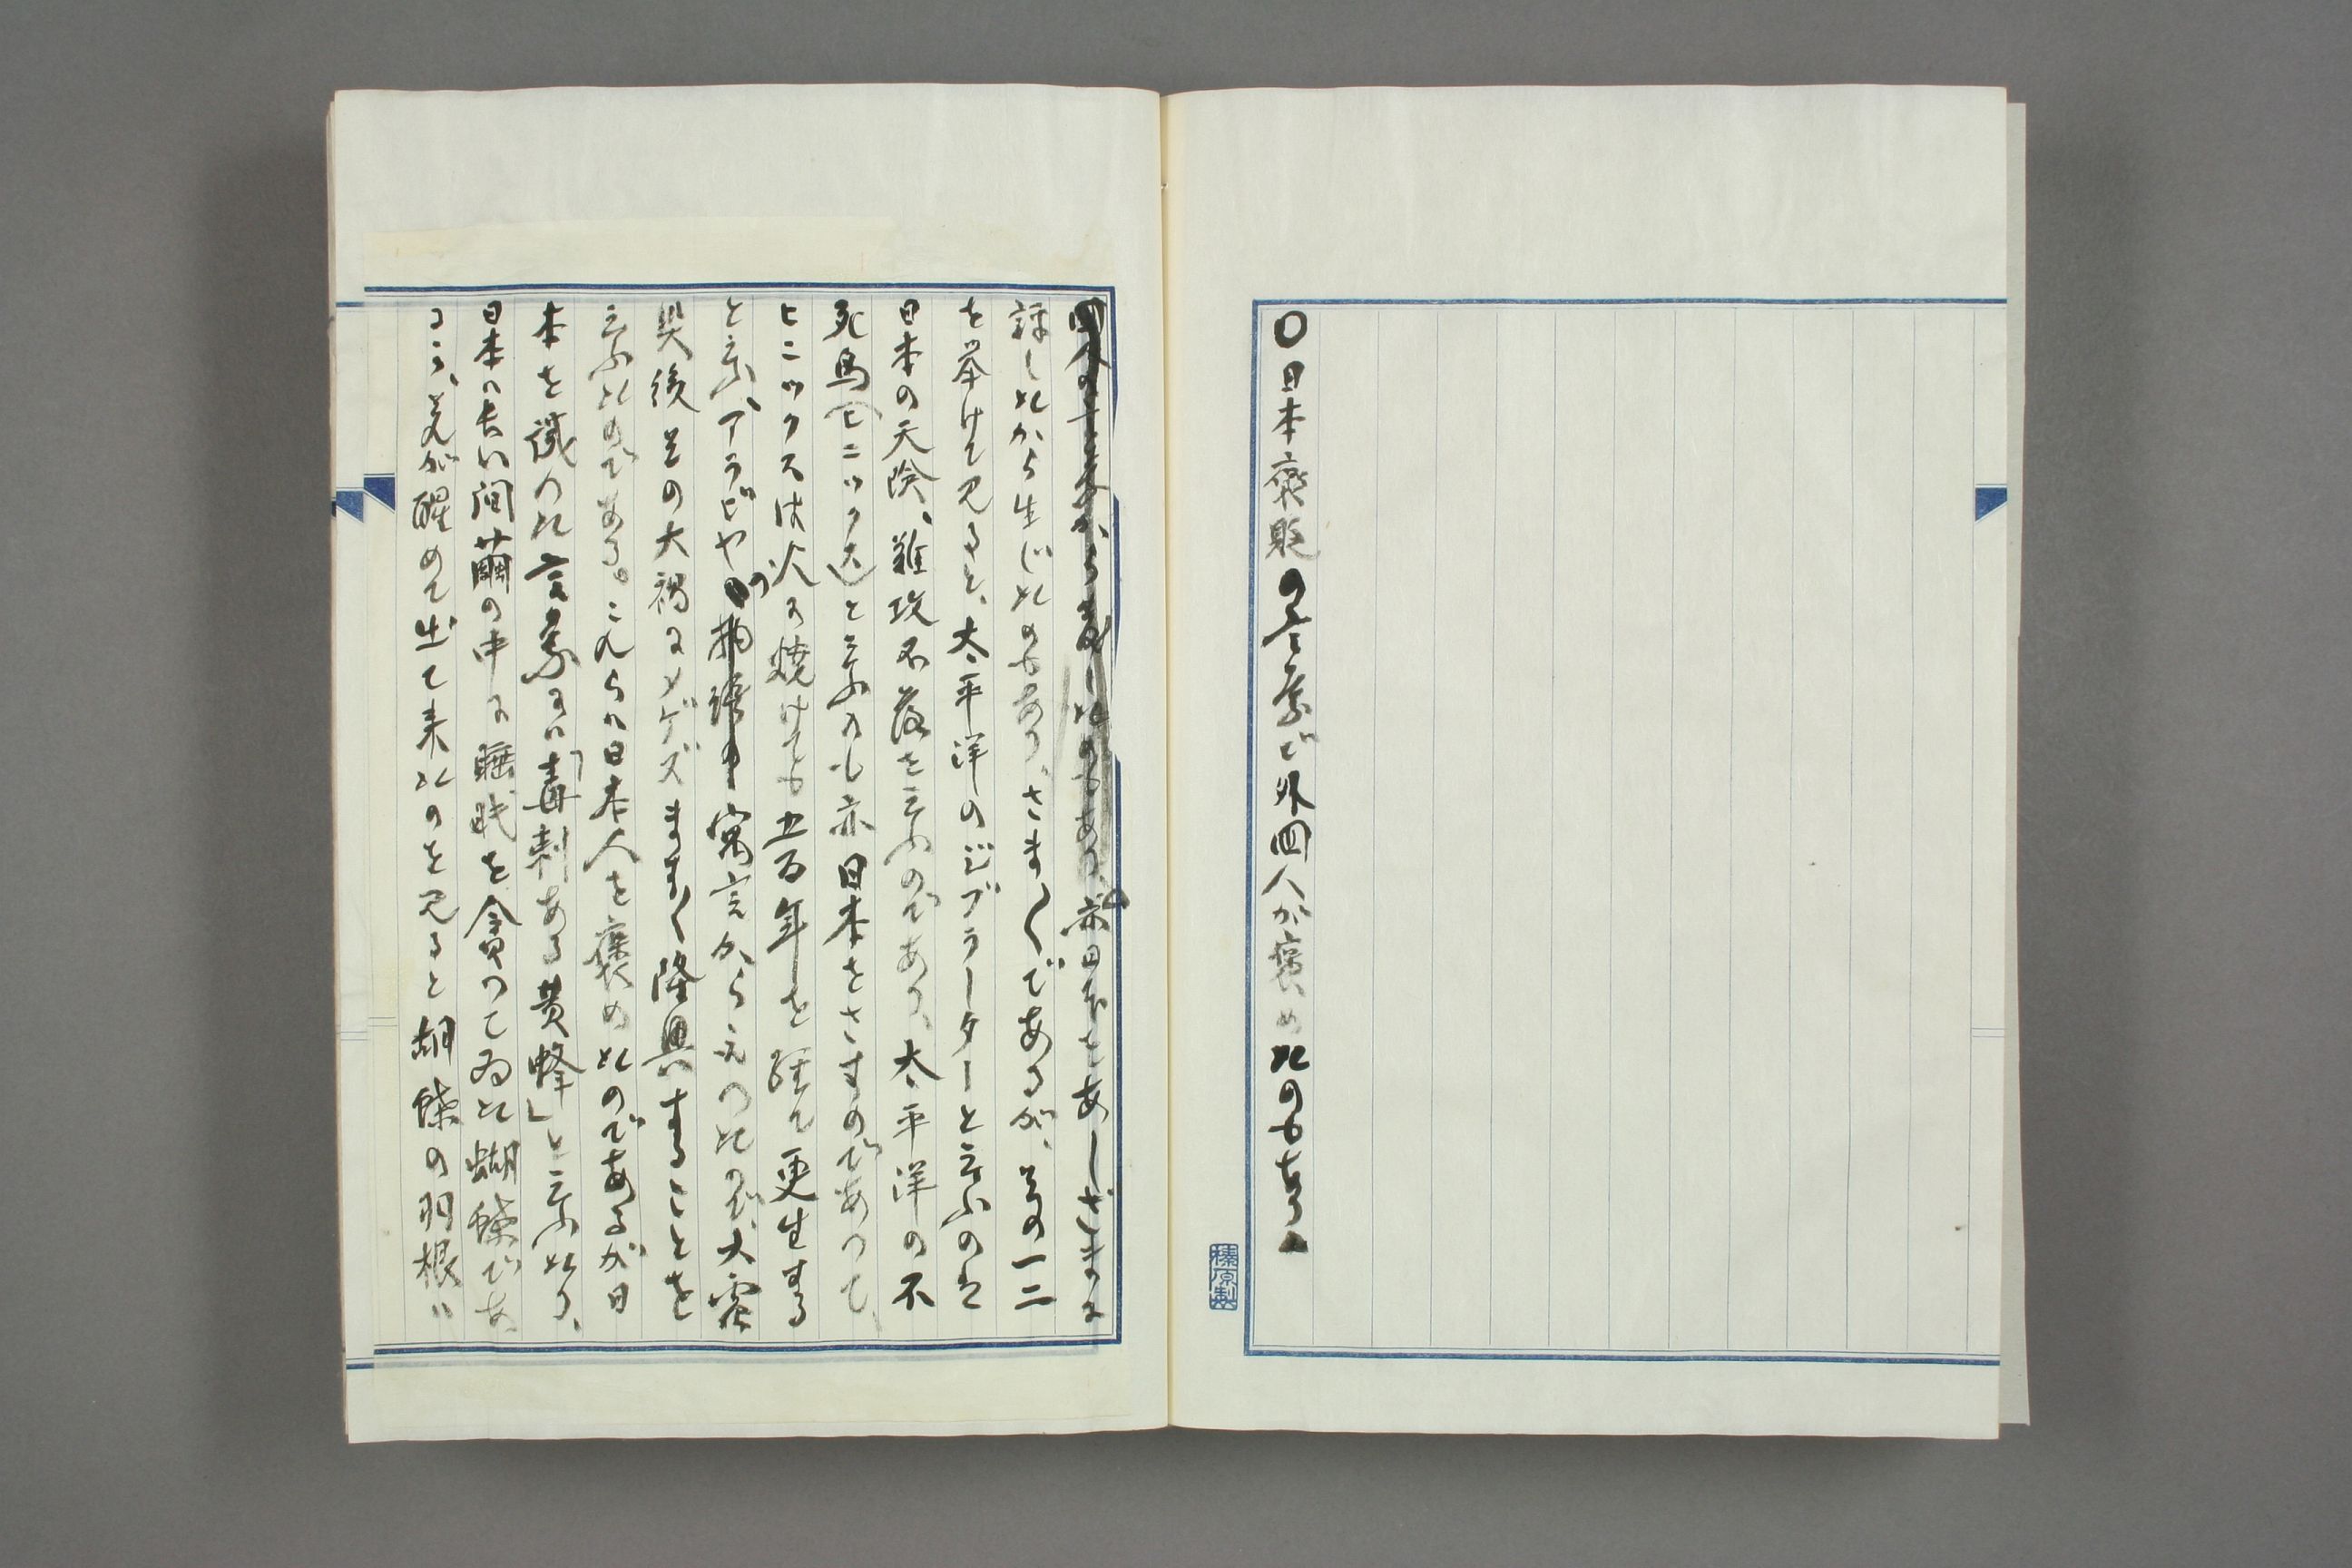 〇日本褒貶の言葉で外国人が褒めたのもあり、
亦日本をあしざまに
評したから生じたのもあり、さま〲であるが、其の一二
を挙げて見ると、太平洋のジブラーターと云ふのは
日本の天険、難攻不落を云ふのであり、太平洋の不
死鳥(ヒニックス)と云ふのも亦日本をさすのであつて、
ヒニックスは火に焼けても五百年を経て更生する
と云ふ、アラビヤの寓言から云つたので、大震
災後其の大禍にメゲズます〱隆興することを
云ふたのである。これらは日本人を褒めたのであるが日
本を譏つた言葉には「毒刺ある黄蜂」と云ふたり、
日本は長い間繭の中に睡眠を貪つてゐた蝴蝶であ
るが、夫が醒めて出て来たのを見ると胡蝶の羽根は
榛原製